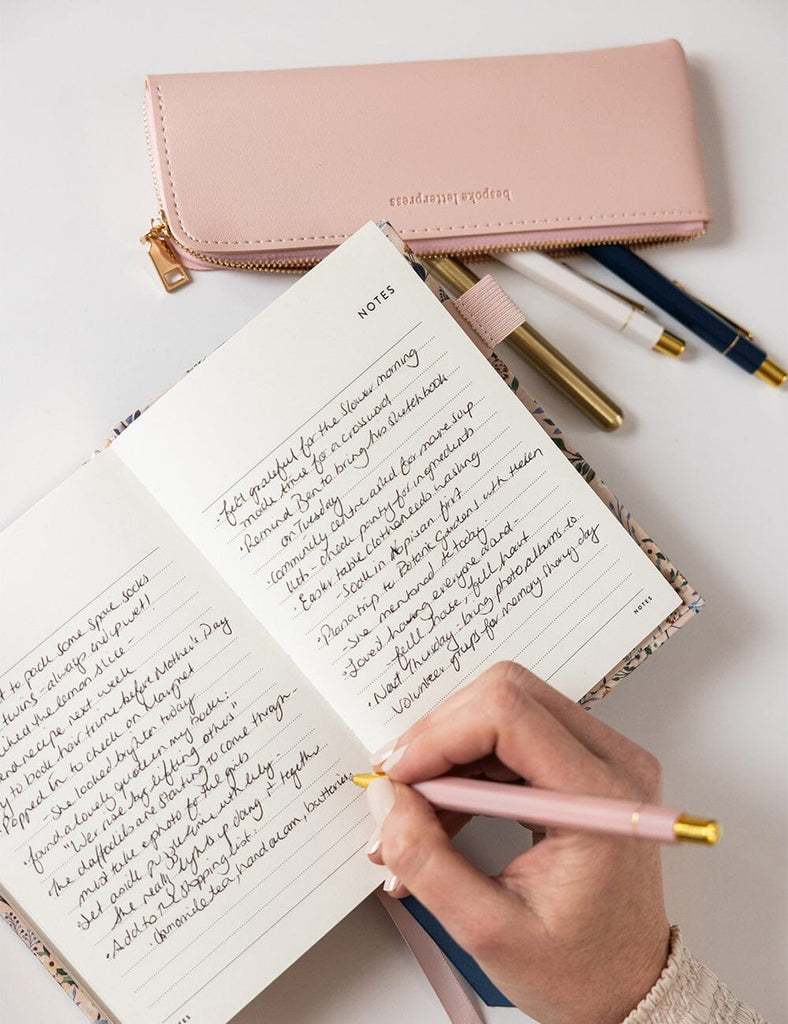 bespoke letterpress
to pack some spare socks
twins - always end up wet!
liked the lemon slice -
recipe next week
to book hair trim before Mother's Day
Popped in to check on Margret
- She looked brighter today
found a lovely quote in my book:
"We rise by lifting others"
The daffodils are starting to come through
must take a photo for the girls
Set aside puzzle time with Lily -
really enjoys doing it together
• Add to the shopping list:
• chamomile tea, hand cream, batteries
NOTES
- felt grateful for the slower morning
made time for a crossword
• Remind Ben to bring his sketchbook
on Tuesday
• Community centre asked for more soup
- check pantry for ingredients
• Easter table cloth needs washing
- Soak in Napisan first
• Plan a trip to Botanic Gardens with Helen
- She mentioned it today
• Loved having everyone over
- full house, full heart
• Next Thursday: bring photo albums to
volunteer group for memory sharing day
NOTES